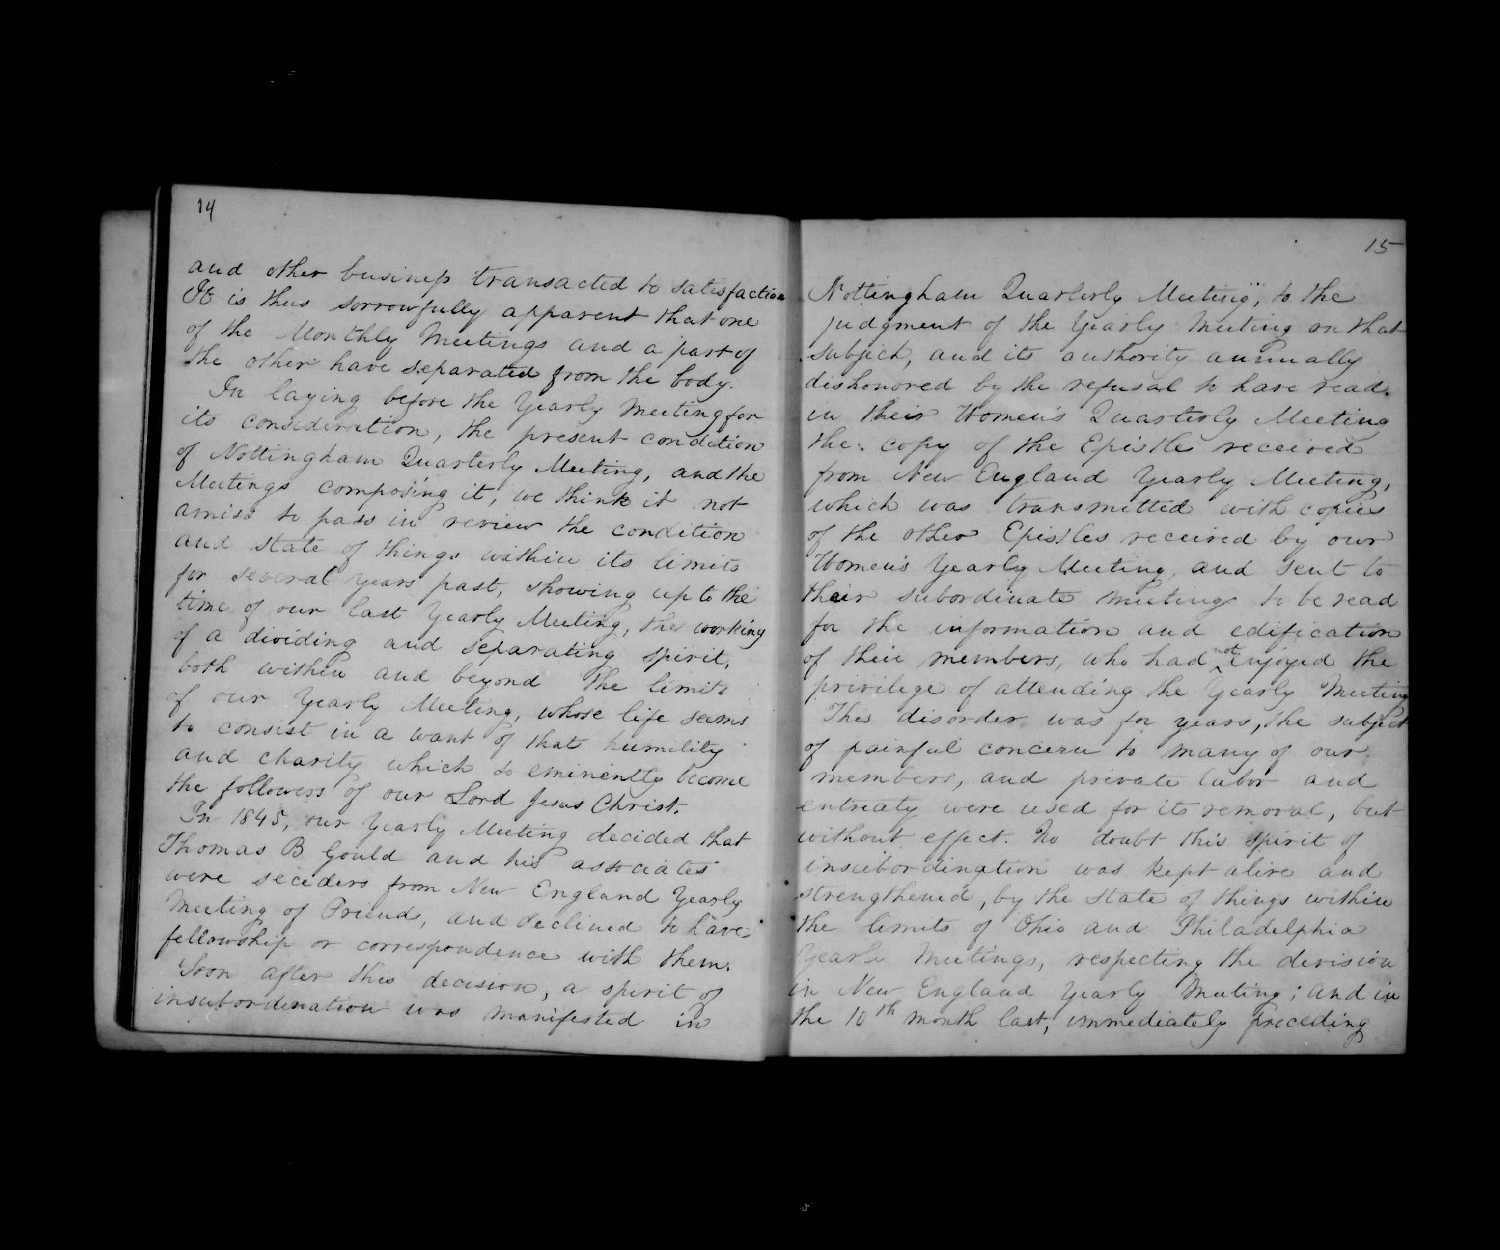 14
and other business transacted to satisfaction
It is thus sorrowfully apparent that one
of the Monthly Meetings and a part of
the other have separated from the body.
In laying before the Yearly Meeting for
its consideration, the present condition
of Nottingham Quarterly Meeting, and the
Meetings composing it, we think it not
amiss to pass in review the condition
and state of things within its limits
for several years past, showing up to the
time of our last Yearly Meeting, the working
of a dividing and separating spirit,
both within and beyond the limits
of our Yearly Meeting, whose life seems
to consist in a want of that humility
and charity which so eminently become
the followers of our Lord Jesus Christ.
In 1845, our Yearly Meeting decided that
Thomas B Gould and his associates
were seceders from New England Yearly
Meeting of Friends, and declined to have
fellowship or correspondence with them.
Soon after this decision, a spirit of
insubordination was manifested in
15
Nottingham Quarterly Meeting, to the
judgment of the Yearly Meeting on that
subject, and its authority annually
dishonored by the refusal to have read
in their Women's Quarterly Meeting
the copy of the Epistle received
from New England Yearly Meeting,
which was transmitted with copies
of the other Epistles received by our
Women's Yearly Meeting and sent to
their subordinate meetings to be read
for the information and edification
of their members, who had not enjoyed the
privilege of attending the Yearly Meeting
This disorder was for years, the subject
of painful concern to many of our
members, and private labor and
entreaty were used for its removal, but
without effect. No doubt this spirit of
insubordination was kept alive and
strengthened, by the state of things within
the limits of Ohio and Philadelphia
Yearly Meetings, respecting the division
in New England Yearly Meeting; and in
the 10th month last, immediately preceding